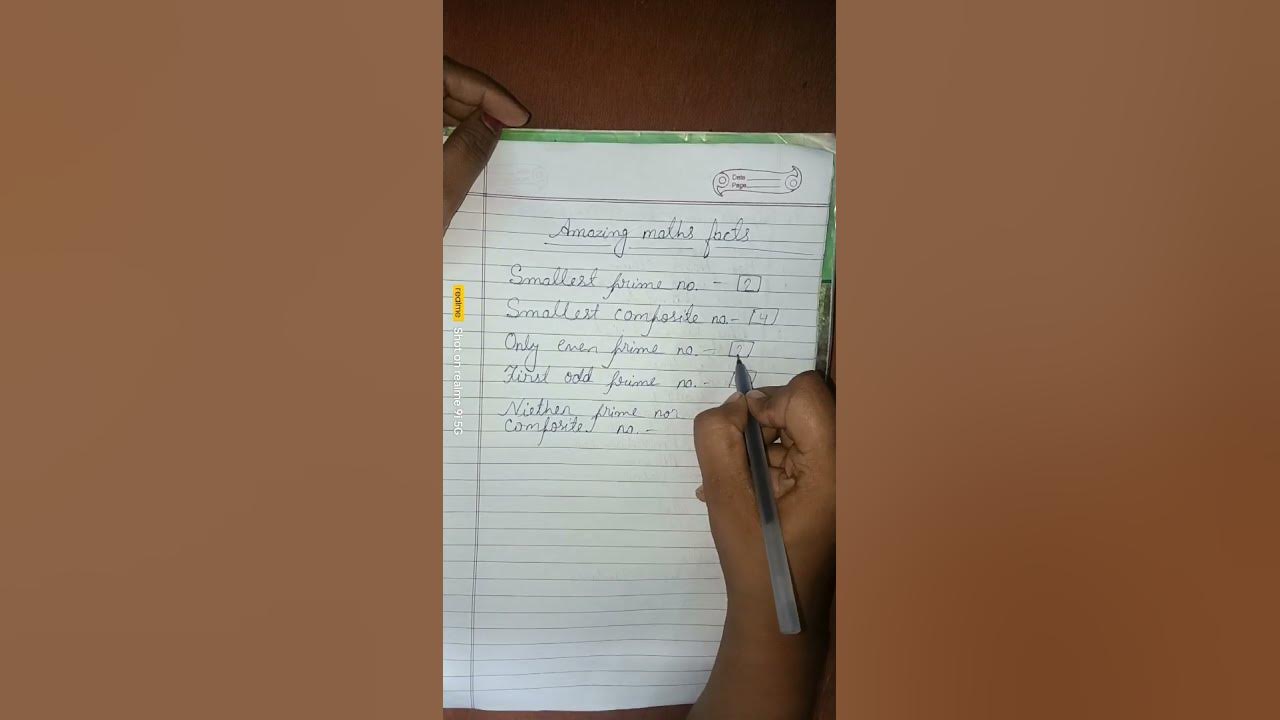 Date
Page
Amazing maths facts
Smallest prime no. - 2
Smallest composite no. - 4
Only even prime no. - 2
First odd prime no. -
Niether prime nor
composite no. -
realme Shot on realme 9i 5G